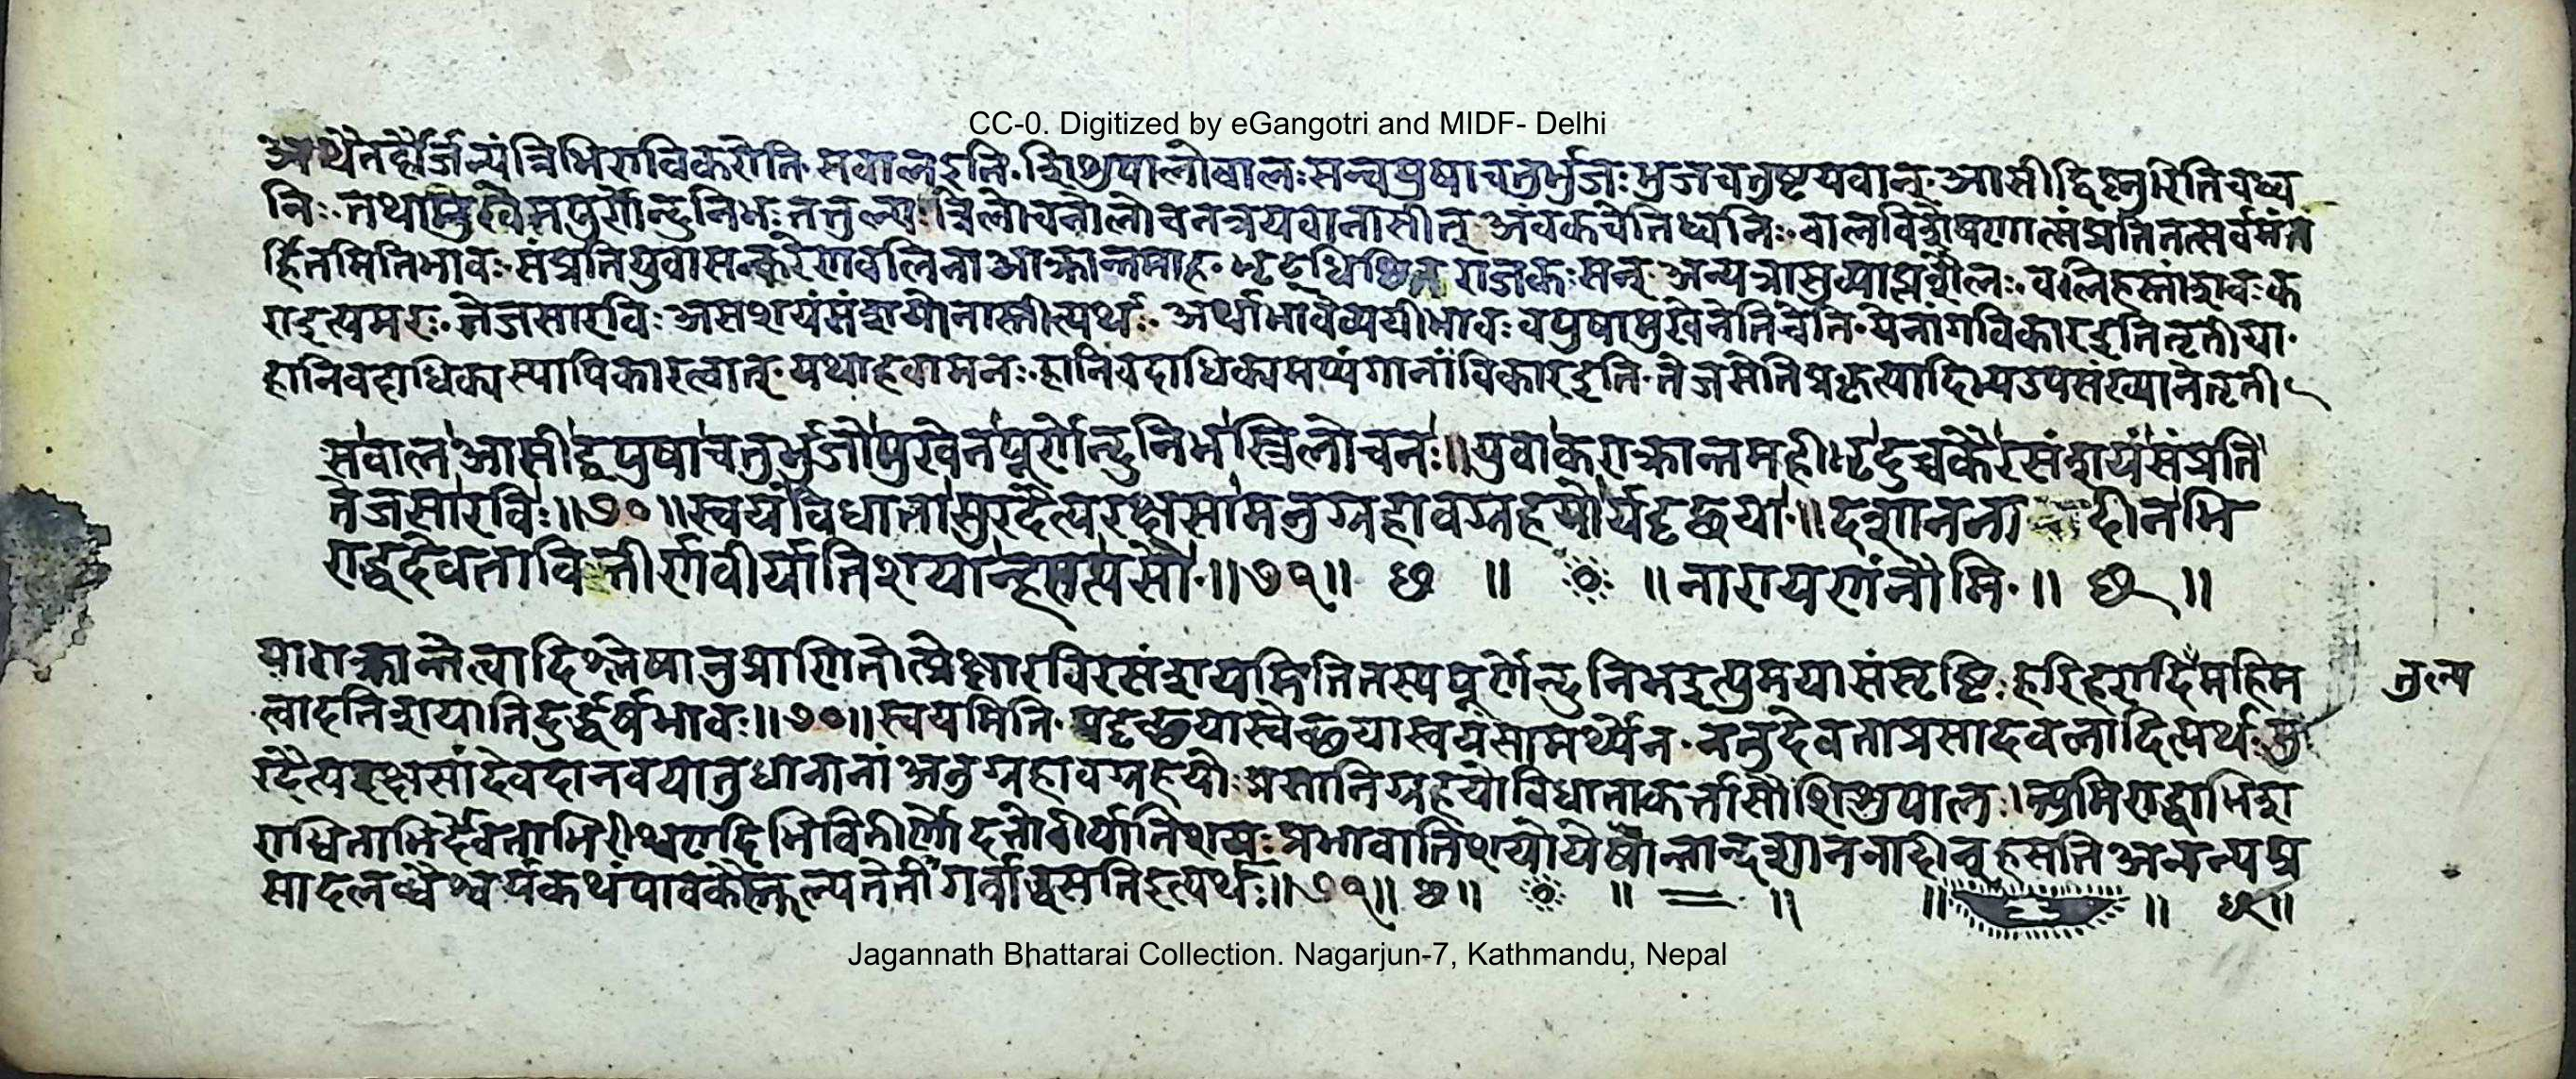 CC-0. Digitized by eGangotri and MIDF- Delhi
अथैतद्दौर्जन्यं त्रिभिराविकरोति॰ सबालइति॰ शिशुपालोबालःसन्वपुषाचतुर्भुजःभुजचतुष्टयवान्॰ आसीद्विष्णुरितिचध्व
निः॰ तथामुखेनपूर्णेन्दुनिभःतत्तुल्यः त्रिलोचनोलोचनत्रयवानासीत् अंबकचेतिध्वनिः॰ बालविशेषणात्संप्रतितत्सर्वमंत
र्हितमितिभावः॰ संप्रतियुवासन्करेणबलिनाआक्रान्तमाह॰ राजकःसन् अन्यत्रांसुव्याप्तशैलः॰ बलिहस्तांशवःक
राइत्यमरः॰ तेजसारविः असशयंसंशयोनास्तीत्यर्थः॰ अर्थाभावेव्ययीभावः वपुषामुखेनेतिचेति॰ येनांगविकारइतितृतीया॰
हानिवदाधिक्यस्यापिकारत्वात्॰ यथाहवामनः॰ हानिवदाधिक्यमप्यंगानांविकारइति॰ तेजसेतिप्रकृत्यादिभ्यउपसंख्यानेतृती
सबालआसीद्वपुषाचतुर्भुजोमुखेनपूर्णेन्दुनिभस्त्रिलोचनः॥युवाकराक्रान्तमहीभृदुच्चकैरसंशयंसंप्रति
तेजसारविः॥७०॥स्वयंविधातासुरदैत्यरक्षसामनुग्रहावग्रहयोर्यदृच्छया॥दशानना दीनभि
राद्धदेवतावितीर्णवीर्यातिशयान्हसत्यसौ॰॥७१॥ छ ॥ ॥नारायणंनौमि॰॥ छ ॥
याराक्रान्तेत्यादिश्लेषानुप्राणितोत्प्रेक्षारविरसंशयमितितस्यपूर्णेन्दुनिभइत्युपमयासंसृष्टिः हरिहरादिमहिम
तुल्य
त्वादतिशयातिदुर्द्धर्षभावः॥७०॥स्वयमिति॰ यदृच्छयास्वेच्छयास्वयंसामर्थ्येन॰ नतुदेवताप्रसादबलादित्यर्थःसु
रदैत्यरक्षसांदेवदानवयातुधानानां अनुग्रहावग्रहयोः प्रसादनिग्रहयोर्विधाताकर्त्तासौशिशुपालः। अभिराद्धाभिरा
राधिताभिर्देवताभिरीश्वरादिभिर्वितीर्णोदत्तोवीर्यातिशयःप्रभावातिशयोयेषांतान्दशाननादीन्हसतिअनन्यप्र
सादलब्धैश्वर्यकथंपावकैस्तुल्यतेतीगर्वाद्धसतिइत्यर्थः॥७१॥ छ॥ ॥ ॥ ॥ ॥ छ॥
Jagannath Bhattarai Collection. Nagarjun-7, Kathmandu, Nepal